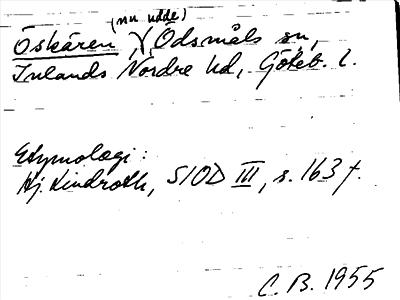 (nu udde)
Öskären, Ödsmåls sn,
Inlands Nordre hd, Göteb. l.
Etymologi:
Hj. Lindroth, SIOD III, s. 163 f.
C. B. 1955